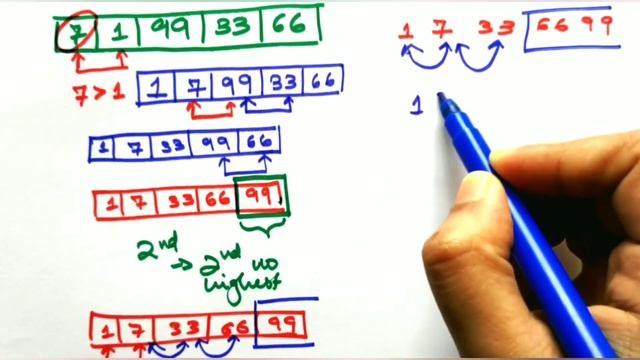 7 1 99 33 66
7 > 1
1 7 99 33 66
1 7 33 99 66
1 7 33 66 99
2nd
→ 2nd no
highest
1 7 33 66 99
1 7 33 66 99
1